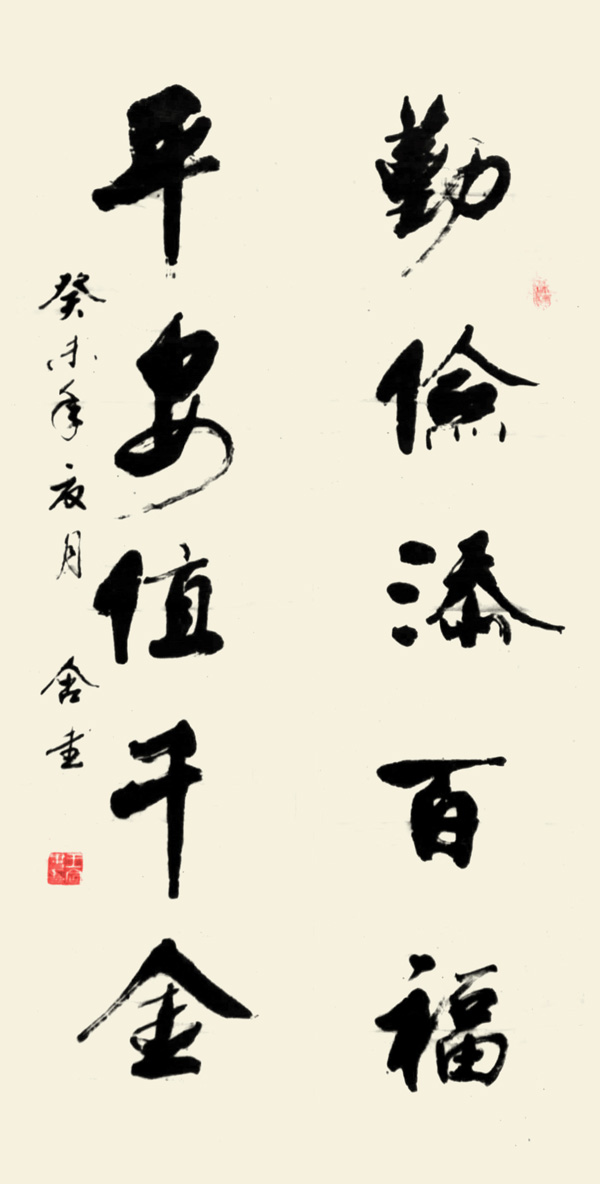 勤儉添百福
平安值千金
癸未年夜月
舍書